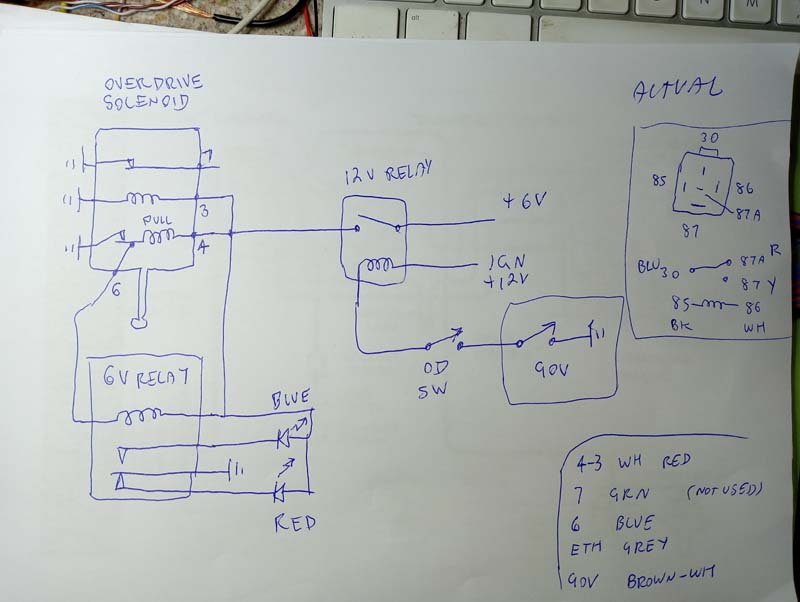 OVERDRIVE
SOLENOID
7
3
PULL
4
6
6V RELAY
BLUE
RED
12V RELAY
+6V
IGN
+12V
OD
SW
GOV
ACTUAL
30
85
86
87A
87
BLU 30
87A R
87 Y
85
86
BK
WH
4-3 WH RED
7 GRN (NOT USED)
6 BLUE
ETH GREY
GOV BROWN-WH
alt
N
M